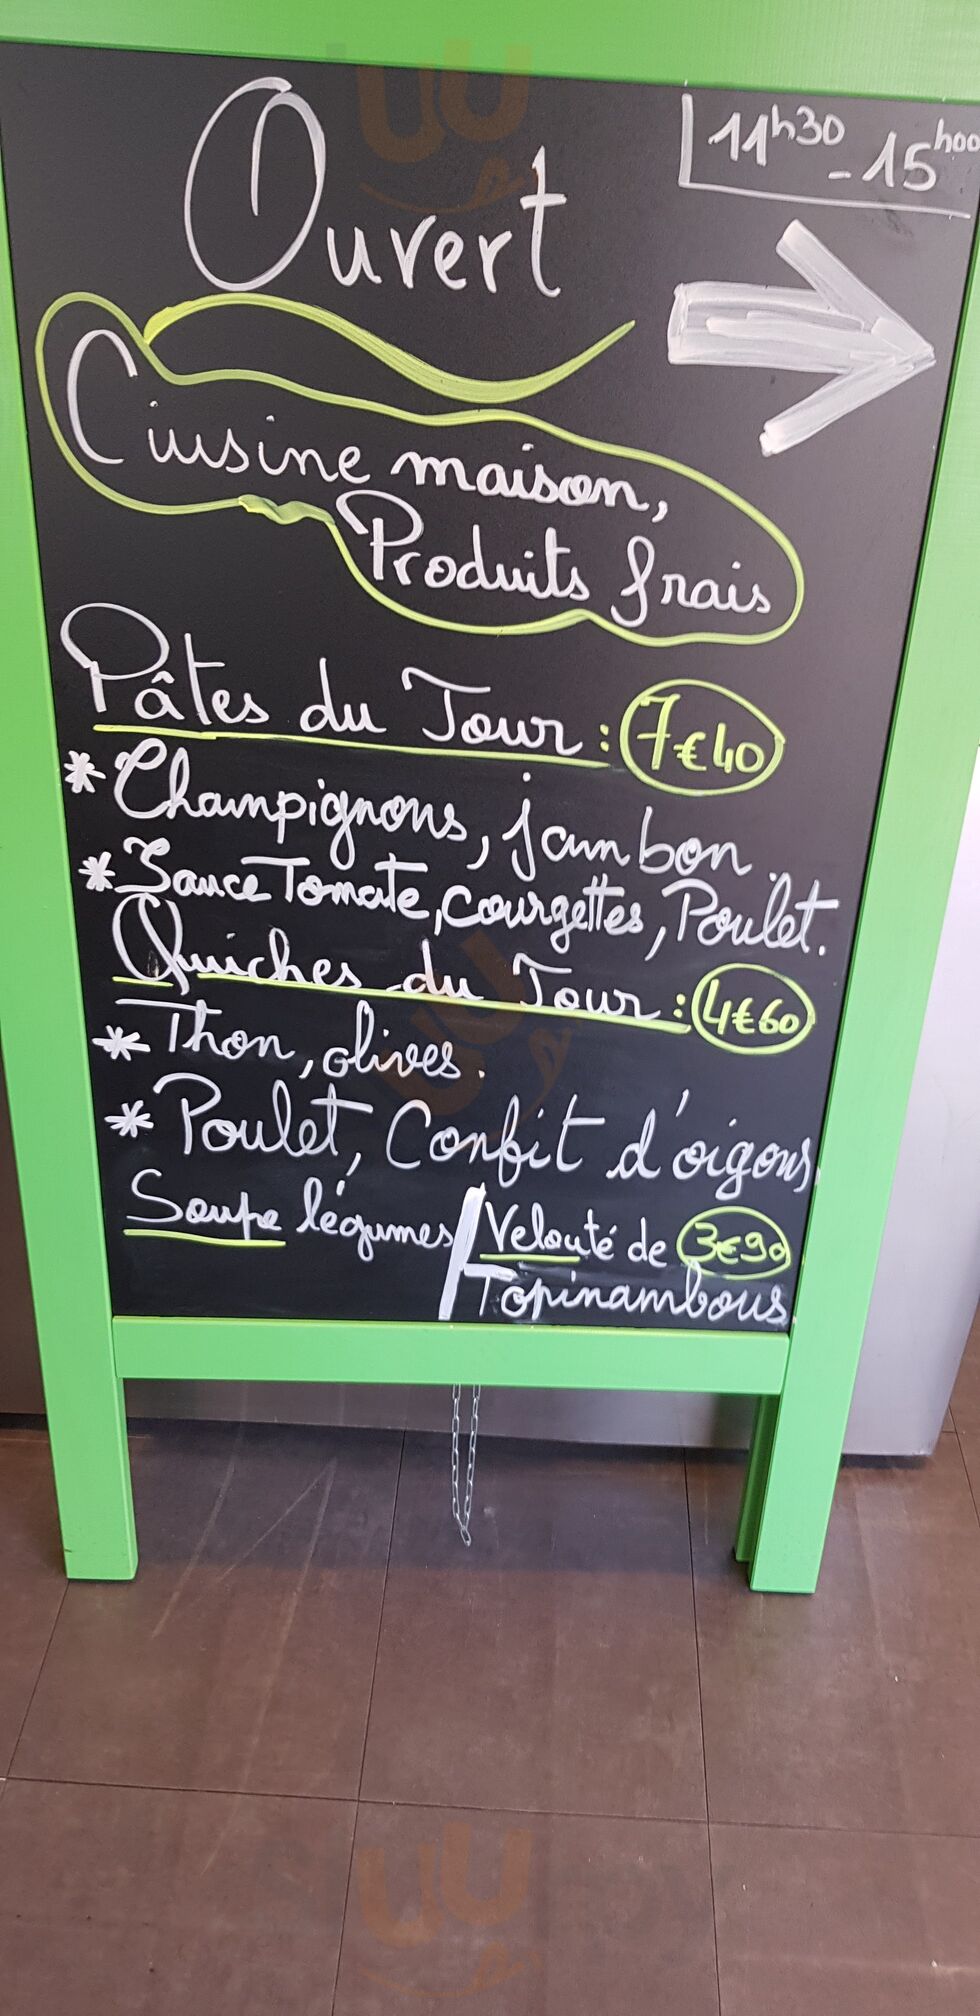 Ouvert
11h30 - 15h00
Cuisine maison,
Produits frais
Pâtes du Jour : 7€40
* Champignons, jambon.
* Sauce Tomate, courgettes, Poulet.
Quiches du Jour : 4€60
* Thon, olives.
* Poulet, Confit d'oigons
Soupe légumes / Velouté de 3€90
Topinambous